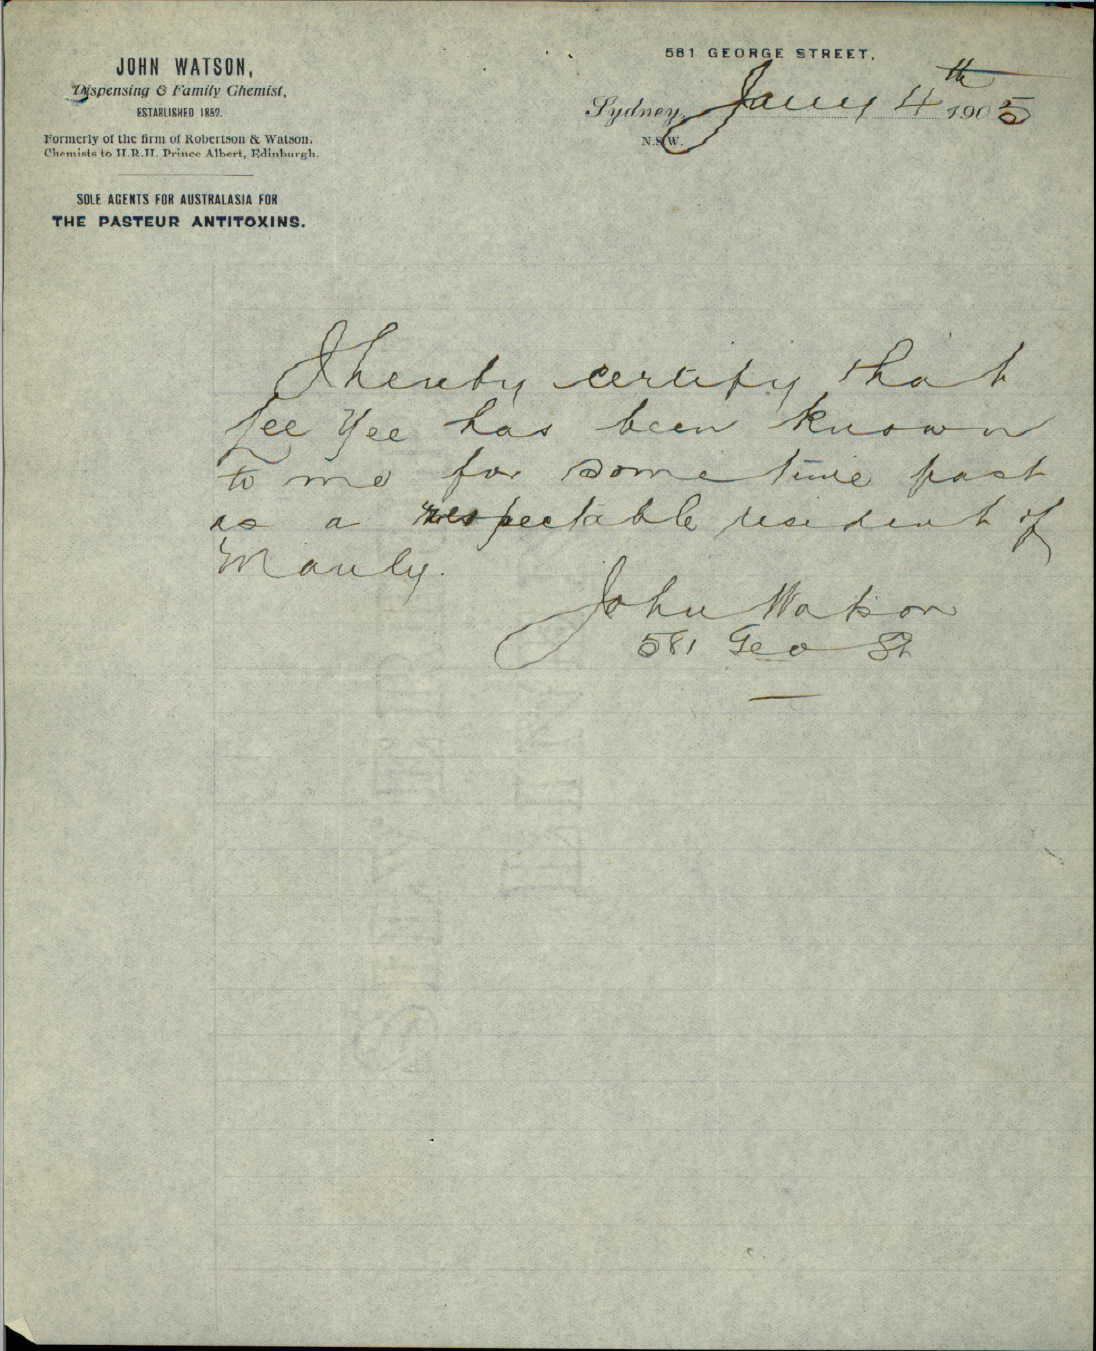 JOHN WATSON,
Dispensing & Family Chemist,
ESTABLISHED 1852.
Formerly of the firm of Robertson & Watson,
Chemists to H.R.H. Prince Albert, Edinburgh.
SOLE AGENTS FOR AUSTRALASIA FOR
THE PASTEUR ANTITOXINS.
581 GEORGE STREET,
Sydney, Jany 4th 1905
N.S.W.
I hereby certify that
Yee has been known
to me for some time past
as a respectable resident of
Manly.
John Watson
581 Geo St